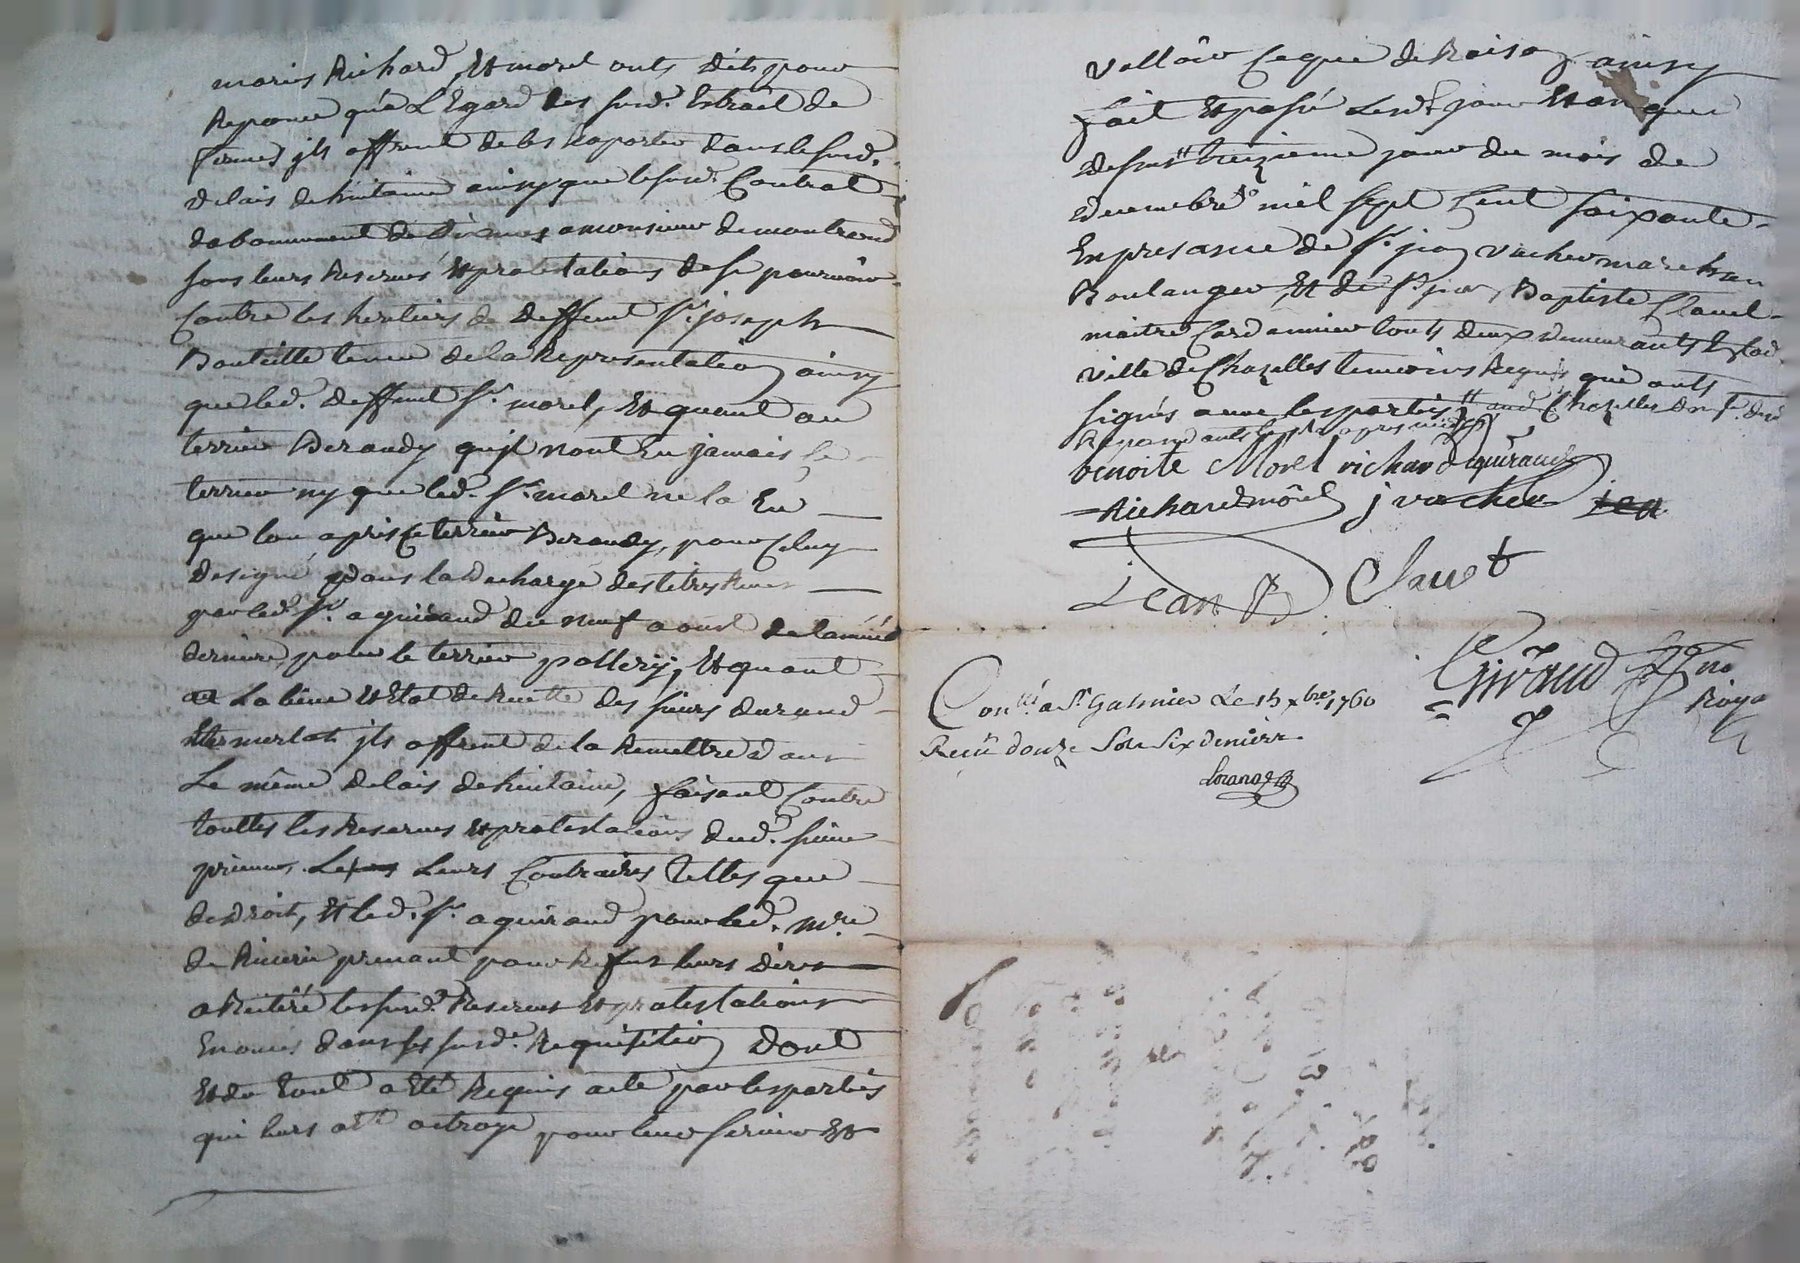 mariés Richard, Et morel onts dits pour
Reponce qu'a L'Egard des susd.s Extrait de
Terriers jls offrent de les Raporter dans le susd.
delais de huitaine ainsy que le susd. Contrat
dabonnement de dixmes a monsieur demontrond
sous leurs Reserves Et protestations de se pourvoir
Contre les heritiers de deffunt Sr. joseph
Bouteille tenu de la Representation ainsy
que led. deffunt Sr. morel, Et quant au
terrier Berandy qu'jl nont Eu jamais le
terrier ny que led. Sr. morel ne la Eu
que lon a pris ce terrier Berandy, pour Celuy
designé dans la decharge des titres
par led. Sr. aguiraud du neuf aoust de lannée
derniere, pour le terrier pallerj, Et quant
a La Et Etat de des sieurs durand
Et merlat jls offrent de la Remettre dans
Le même delais de huitaine, faisant Contre
touttes les Reserves Et protestations dud. sieur
prieur Leurs Contraires telles que
de droit, Et led. Sr. aguiraud pour led. mre
de Riverie prenant pour Refus leurs dires
a Reiteré les susd. Reserves Et protestations
Enoncés dans sa susd. Requisition dont
Et du tout a Eté Requis acte par les parties
qui leurs a Eté octroyé pour leur servir Et
valloir Ce que de Raison ainsy
fait Et passé Lesd. jour Et an que
dessus treizieme jour du mois de
decembre mil sept Cent soixante
En presance de Sr. jean vacher marchan
Boulanger, Et de Sr. jean, Baptiste Clauel
maitre Cordonnier touts deux demeurants En lad.
ville de Chazelles temoins Requis qui onts
signés avec les parties aud. Chazelles
apres midy
benoite Morel richard aguiraud
Richard morel j vacher jea
jean B Clauet
Giraud No. Royal
Conlé a St Galmier Le 15 xbre 1760
Receu douze Sols Six deniers